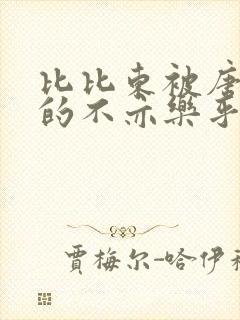 比比东被唐
的不亦樂乎
賈梅尔-哈伊